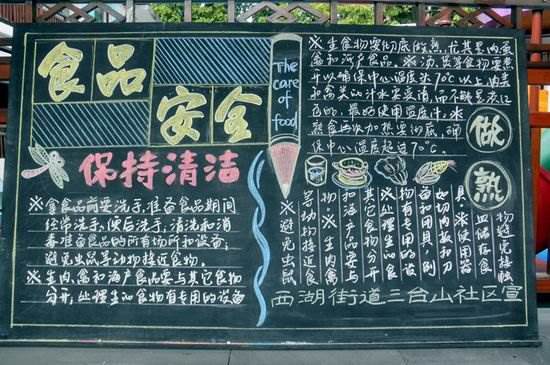 食品
安全
The
care
of
food
保持清洁
※拿食品前要洗手,准备食品期间
经常洗手,便后洗手,清洗和消
毒准备食品的所有场所和设备;
避免虫鼠等动物接近食物。
※生肉、禽和海产食品要与其它食物
分开,处理生的食物有专用的设备
※生食物要彻底的煮熟,尤其是肉蛋
禽和海产食品。※汤、煲等食物要煮
开以确保中心温度达70℃以上,肉类
和禽类的汁水要变清,而不能是淡红
色的,最好使用温度计,※
熟食再次加热要彻底,确
保中心温度超过70℃。
做
熟
※避免虫鼠
等动物接近
食物
※生肉禽
和海产品要与
其它食物分开
处理生的食
物有专用的设
备和用具,例
如切肉刀和切
具※使用器
皿储存食
物避免接触
西湖街道三台山社区宣